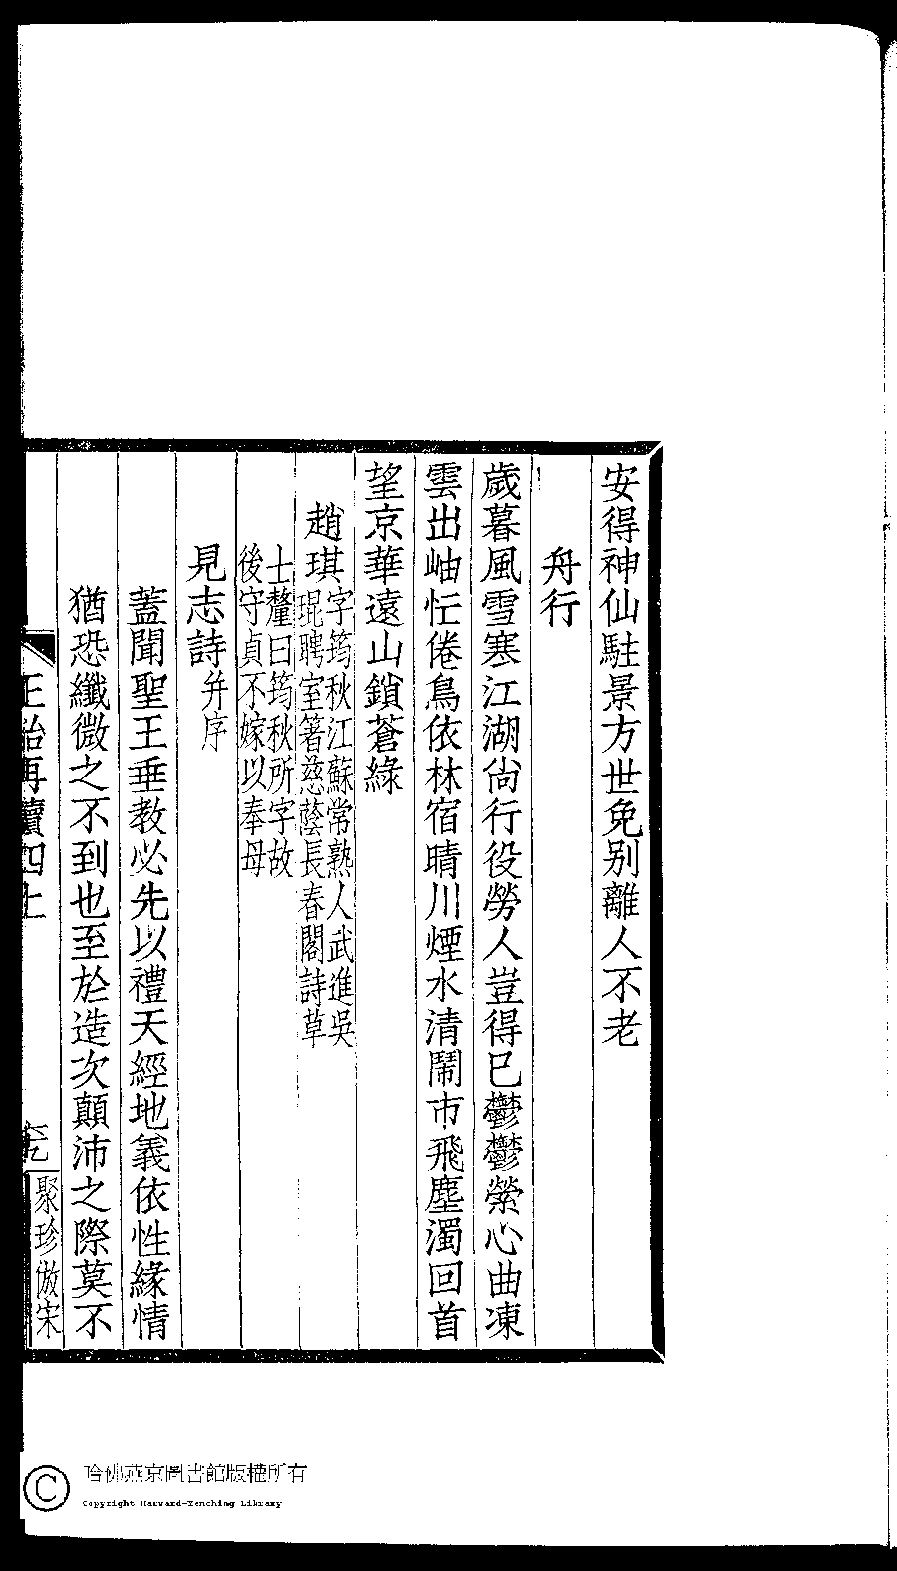 安得神仙駐景方世免别離人不老
舟行
歲暮風雪寒江湖尙行役勞人豈得已鬱鬱縈心曲凍
雲出岫恹倦鳥依林宿晴川煙水清鬧市飛塵濁回首
望京華遠山鎖蒼綠
趙琪字筠秋江蘇常熟人武進吳
琨聘室箸慈蔭長春閣詩草
士釐曰筠秋所字故
後守貞不嫁以奉母
見志詩并序
蓋聞聖王垂教必先以禮天經地義依性緣情
猶恐纖微之不到也至於造次顛沛之際莫不
正始再續四上
聚珍倣宋
哈佛燕京圖書館版權所有
Copyright Harvard-Yenching Library